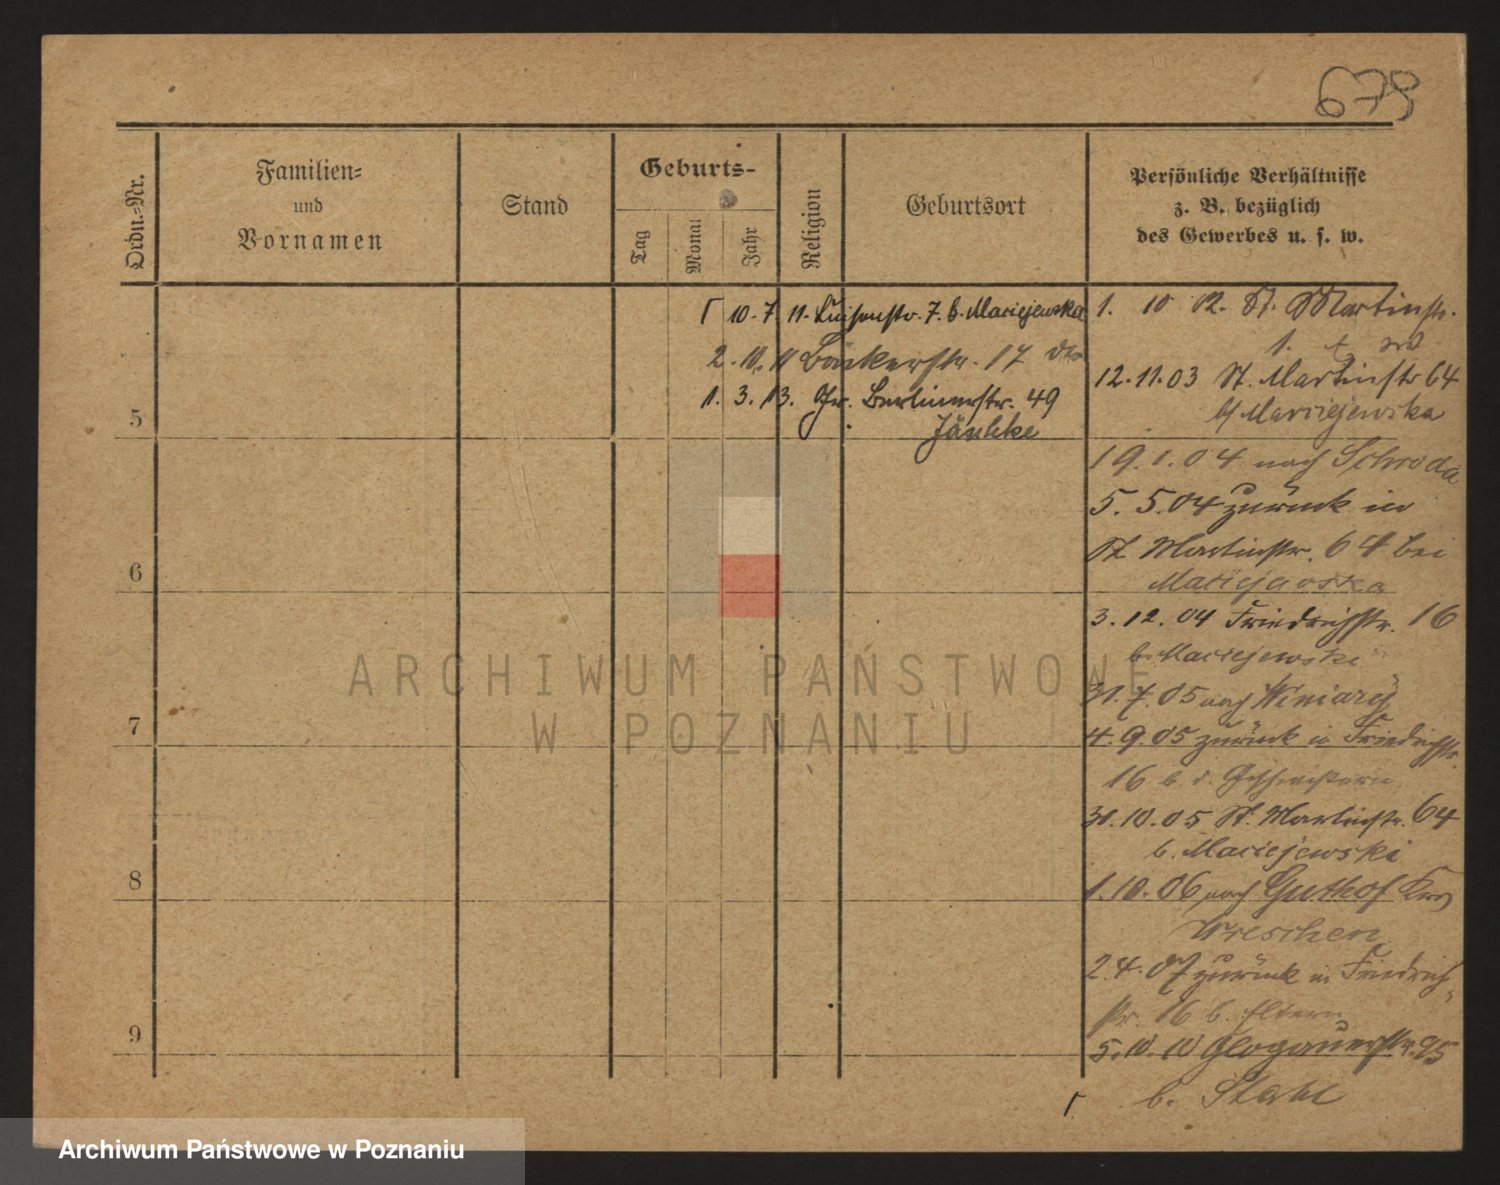 679
Ordn.-Nr.
Familien-
und
Vornamen
Stand
Geburts-
Tag
Monat
Jahr
Religion
Geburtsort
Persönliche Verhältnisse
z. B. bezüglich
des Gewerbes u. s. w.
10. 7. 11. Luisenstr. 7. b. Maciejewska
2. 10. 11 Bäckerstr. 17 dto
1. 3. 13. Gr. Berlinerstr. 49
Jänhke
1. 10 02. St. Martinstr.
1.
12. 11. 03 St. Martinstr 64
b/ Marciejewska
19. 1. 04 nach Schroda
5. 5. 04 zurück in
St Martinstr. 64 bei
Maciejewska
3. 12. 04 Friedrichstr. 16
b. Maciejewski
31. 7. 05 nach Winiary
4. 9. 05 zurück in Friedrichstr.
16 b. d. Geschwistern
30. 10. 05 St. Martinstr. 64
b. Maciejewski
1. 10. 06 nach Guthof Krs
Wreschen
2. 4. 07 zurück in Friedrich-
str. 16 b. Eltern
5. 10. 10 Glogauerstr. 95
b. Stahl
5
6
7
8
9
ARCHIWUM PAŃSTWOWE
W POZNANIU
Archiwum Państwowe w Poznaniu